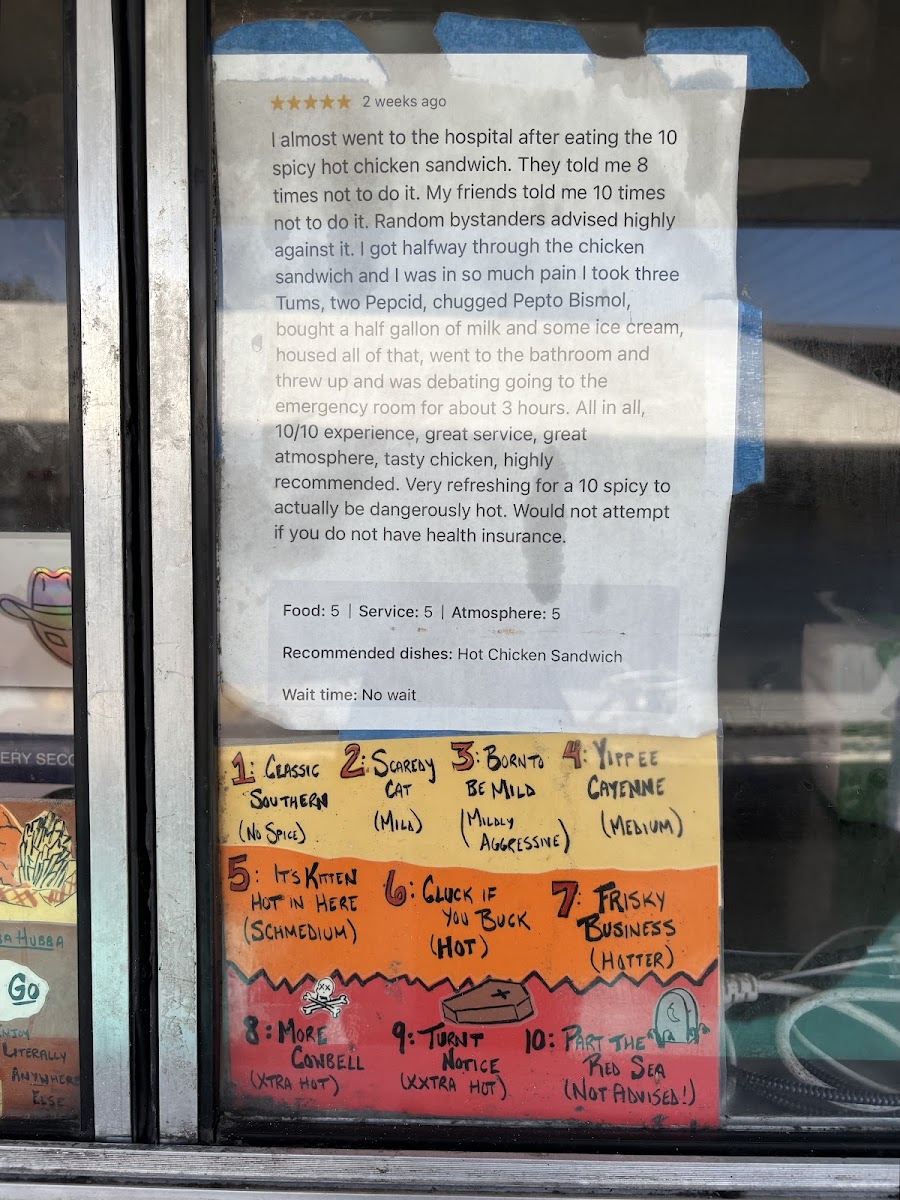 2 weeks ago
I almost went to the hospital after eating the 10
spicy hot chicken sandwich. They told me 8
times not to do it. My friends told me 10 times
not to do it. Random bystanders advised highly
against it. I got halfway through the chicken
sandwich and I was in so much pain I took three
Tums, two Pepcid, chugged Pepto Bismol,
bought a half gallon of milk and some ice cream,
housed all of that, went to the bathroom and
threw up and was debating going to the
emergency room for about 3 hours. All in all,
10/10 experience, great service, great
atmosphere, tasty chicken, highly
recommended. Very refreshing for a 10 spicy to
actually be dangerously hot. Would not attempt
if you do not have health insurance.
Food: 5 | Service: 5 | Atmosphere: 5
Recommended dishes: Hot Chicken Sandwich
Wait time: No wait
1: CLASSIC SOUTHERN (NO SPICE)
2: SCAREDY CAT (MILD)
3: BORN TO BE MILD (MILDLY AGGRESSIVE)
4: YIPPEE CAYENNE (MEDIUM)
5: IT'S KITTEN HOT IN HERE (SCHMEDIUM)
6: CLUCK IF YOU BUCK (HOT)
7: FRISKY BUSINESS (HOTTER)
8: MORE COWBELL (XTRA HOT)
9: TURNT NOTICE (XXTRA HOT)
10: PART THE RED SEA (NOT ADVISED!)
ERY SECO
HUBBA
GO
ENJOY
LITERALLY
ANYWHERE
ELSE